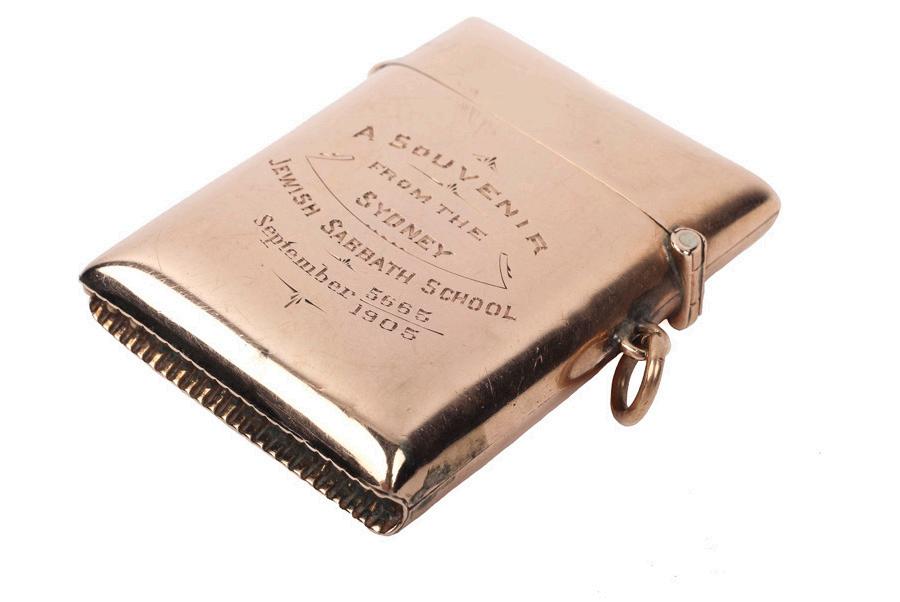 A SOUVENIR
FROM THE
SYDNEY
JEWISH SABBATH SCHOOL
September 5665
1905